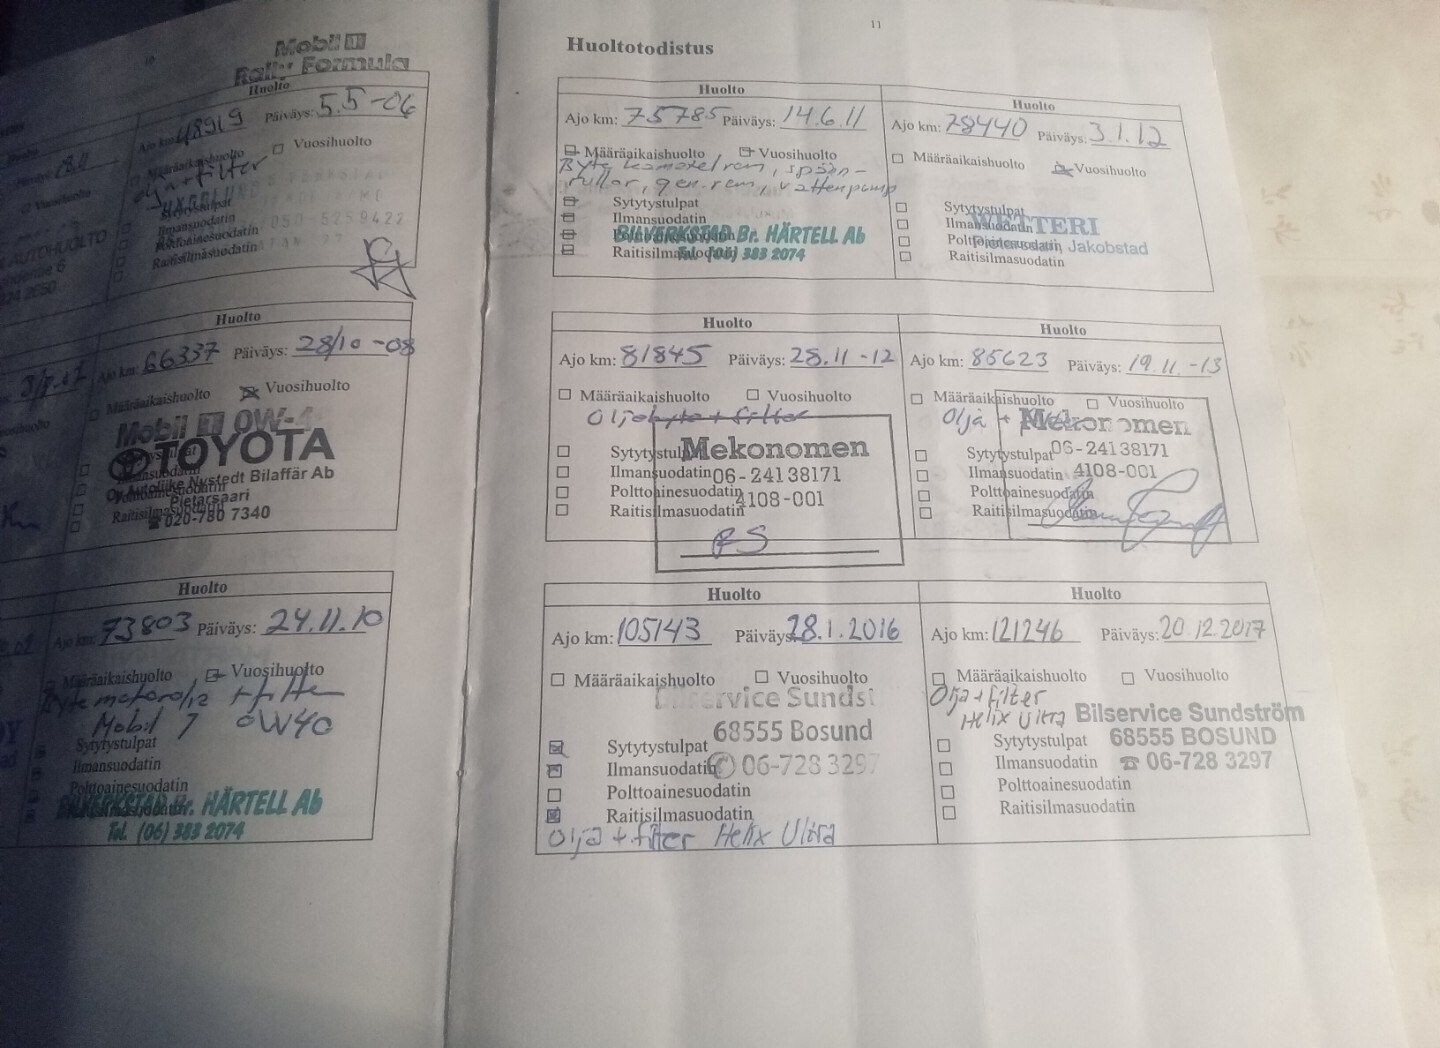 10
Mobil 1
Rally Formula
Huolto
Ajo km: 48919 Päiväys: 5.5-06
Määräaikaishuolto Vuosihuolto
olja + filter
Sytytystulpat
Ilmansuodatin 050-5259422
Polttoainesuodatin
Raitisilmasuodatin
Vuosihuolto
AUTOHUOLTO
Huolto
Ajo km: 66337 Päiväys: 28/10-08
Määräaikaishuolto Vuosihuolto
Mobil 1 0W-4
TOYOTA
Autoliike Nystedt Bilaffär Ab
Pietarsaari
Raitisilmasuodatin
020-780 7340
Huolto
Ajo km: 73803 Päiväys: 24.11.10
Määräaikaishuolto Vuosihuolto
Byte motorolja + filter
Mobil 1 0W40
Sytytystulpat
Ilmansuodatin
Polttoainesuodatin
BILVERKSTAD Br. HÄRTELL Ab
Tel. (06) 383 2074
11
Huoltotodistus
Huolto
Ajo km: 75785 Päiväys: 14.6.11
Määräaikaishuolto Vuosihuolto
Byte kamaxelrem, spänn-
rullar, gen.rem, vattenpump
Sytytystulpat
Ilmansuodatin
Polttoainesuodatin
BILVERKSTAD Br. HÄRTELL Ab
Raitisilmasuodatin
Tel. (06) 383 2074
Huolto
Ajo km: 78440 Päiväys: 3.1.12
Määräaikaishuolto Vuosihuolto
Sytytystulpat
Ilmansuodatin
WETTERI
Polttoainesuodatin
Pietarsaari Jakobstad
Raitisilmasuodatin
Huolto
Ajo km: 81845 Päiväys: 28.11-12
Määräaikaishuolto Vuosihuolto
Oljebyte + filter
Sytytystulpat
Mekonomen
Ilmansuodatin
06-24138171
Polttoainesuodatin
4108-001
Raitisilmasuodatin
Huolto
Ajo km: 85623 Päiväys: 19.11.-13
Määräaikaishuolto Vuosihuolto
Olja +
Mekonomen
Sytytystulpat
06-24138171
Ilmansuodatin
4108-001
Polttoainesuodatin
Raitisilmasuodatin
Huolto
Ajo km: 105143 Päiväys: 28.1.2016
Määräaikaishuolto Vuosihuolto
Bilservice Sundst
68555 Bosund
Sytytystulpat
Ilmansuodatin
06-728 3297
Polttoainesuodatin
Raitisilmasuodatin
Olja + filter Helix Ultra
Huolto
Ajo km: 121246 Päiväys: 20.12.2017
Määräaikaishuolto Vuosihuolto
Olja + filter
Helix Ultra
Bilservice Sundström
Sytytystulpat
68555 BOSUND
Ilmansuodatin
06-728 3297
Polttoainesuodatin
Raitisilmasuodatin